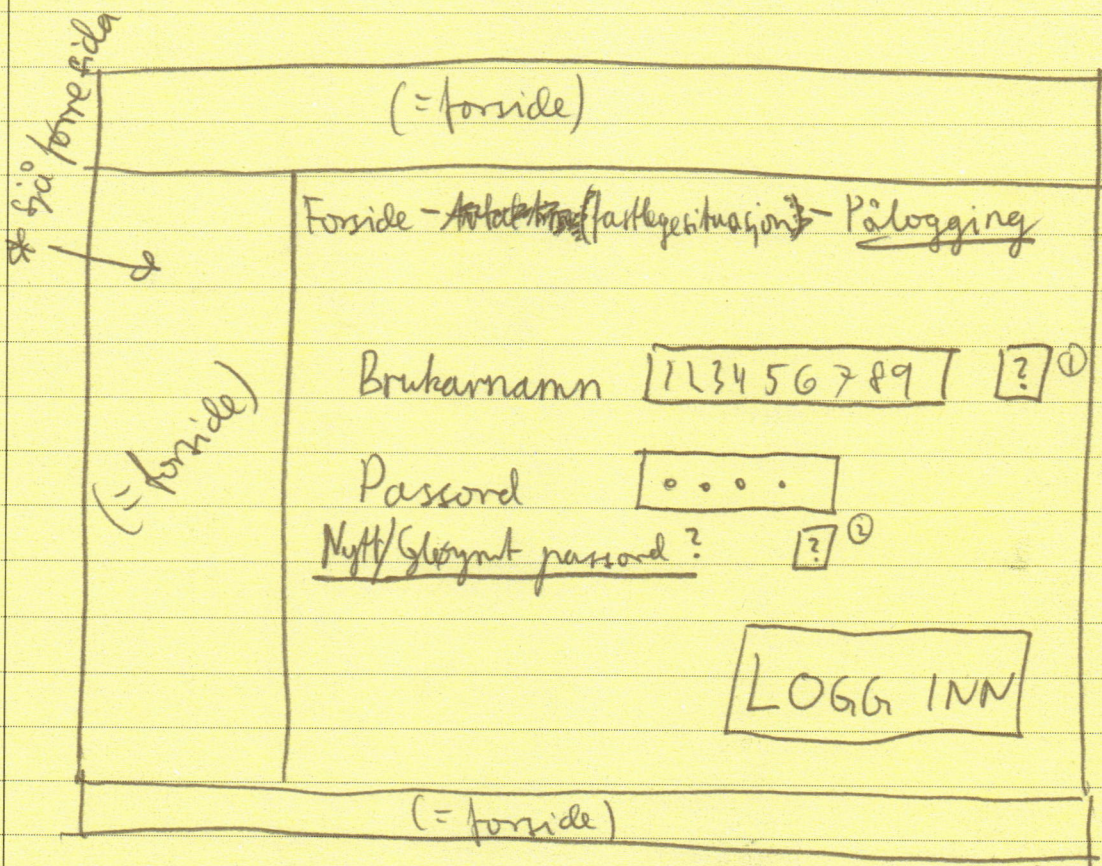 * sjå førre sida
(= forside)
Forside - (fastlegesituasjon) - Pålogging
Brukarnamn 123456789 ? ①
(= forside)
Passord • • • •
Nytt/Gløymt passord? ? ②
LOGG INN
(= forside)